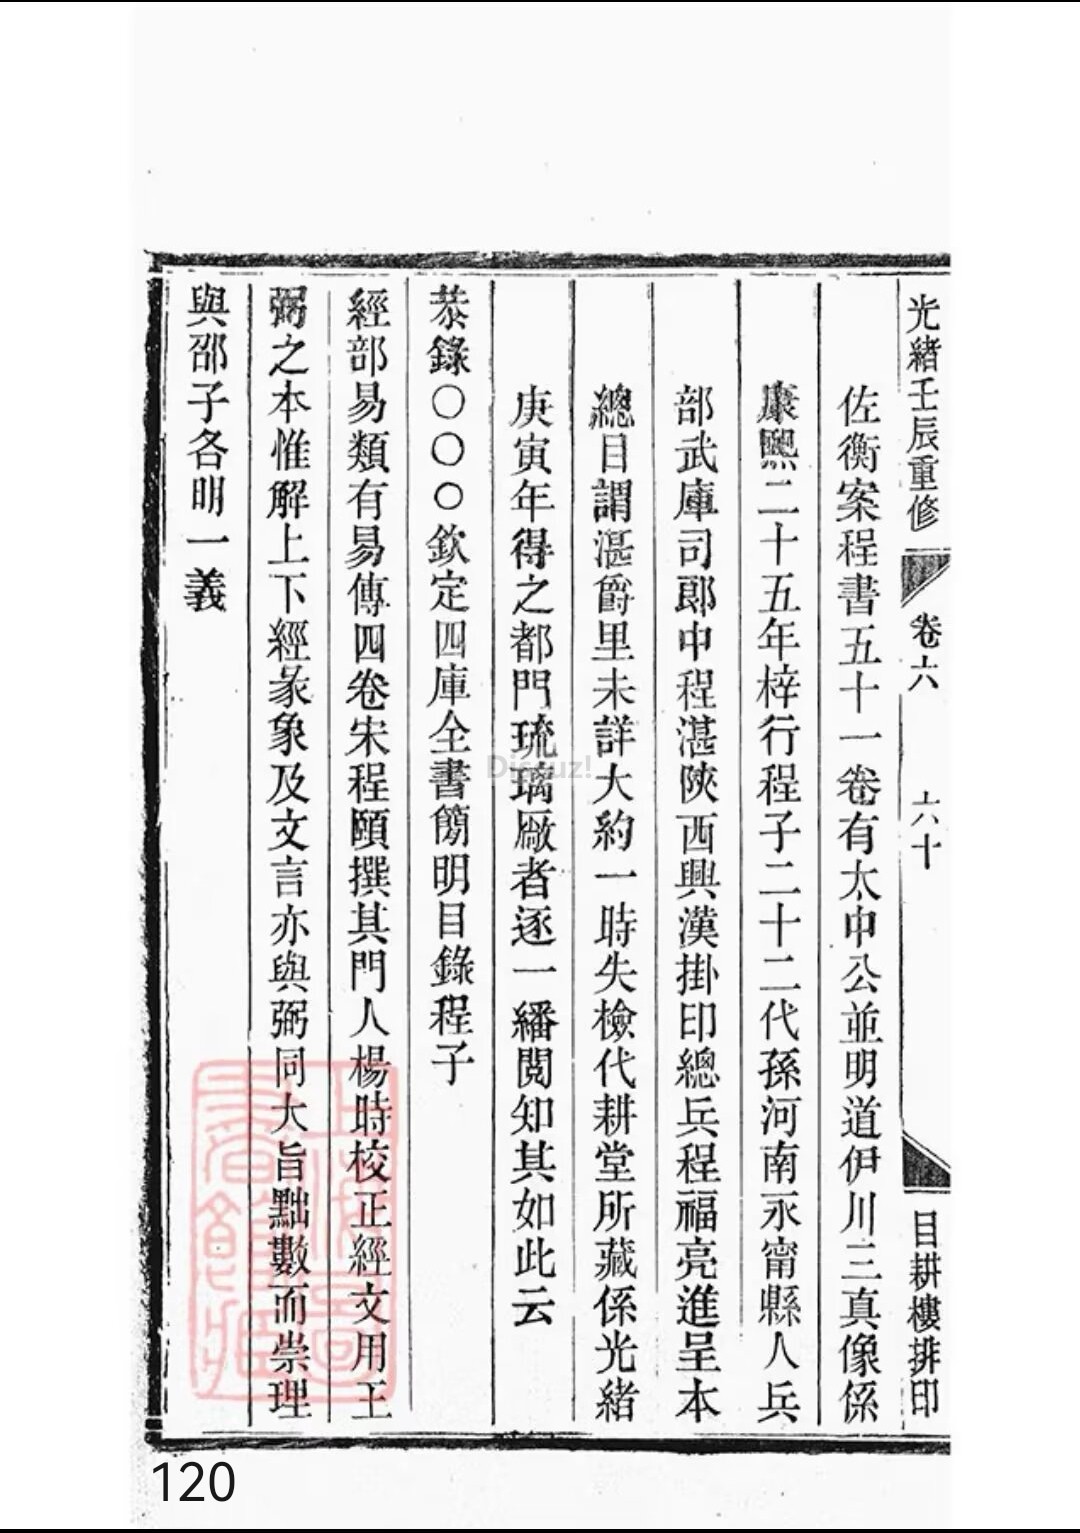 光緒壬辰重修 卷六 六十 目耕樓排印
佐衡案程書五十一卷有太中公並明道伊川三真像係
康熙二十五年梓行程子二十二代孫河南永甯縣人兵
部武庫司郎中程湛陝西興漢掛印總兵程福亮進呈本
總目謂湛爵里未詳大約一時失檢代耕堂所藏係光緒
庚寅年得之都門琉璃廠者逐一繙閱知其如此云
恭錄〇〇〇欽定四庫全書簡明目錄程子
經部易類有易傳四卷宋程頤撰其門人楊時校正經文用王
弼之本惟解上下經彖象及文言亦與弼同大旨黜數而崇理
與邵子各明一義
Discuz!
120